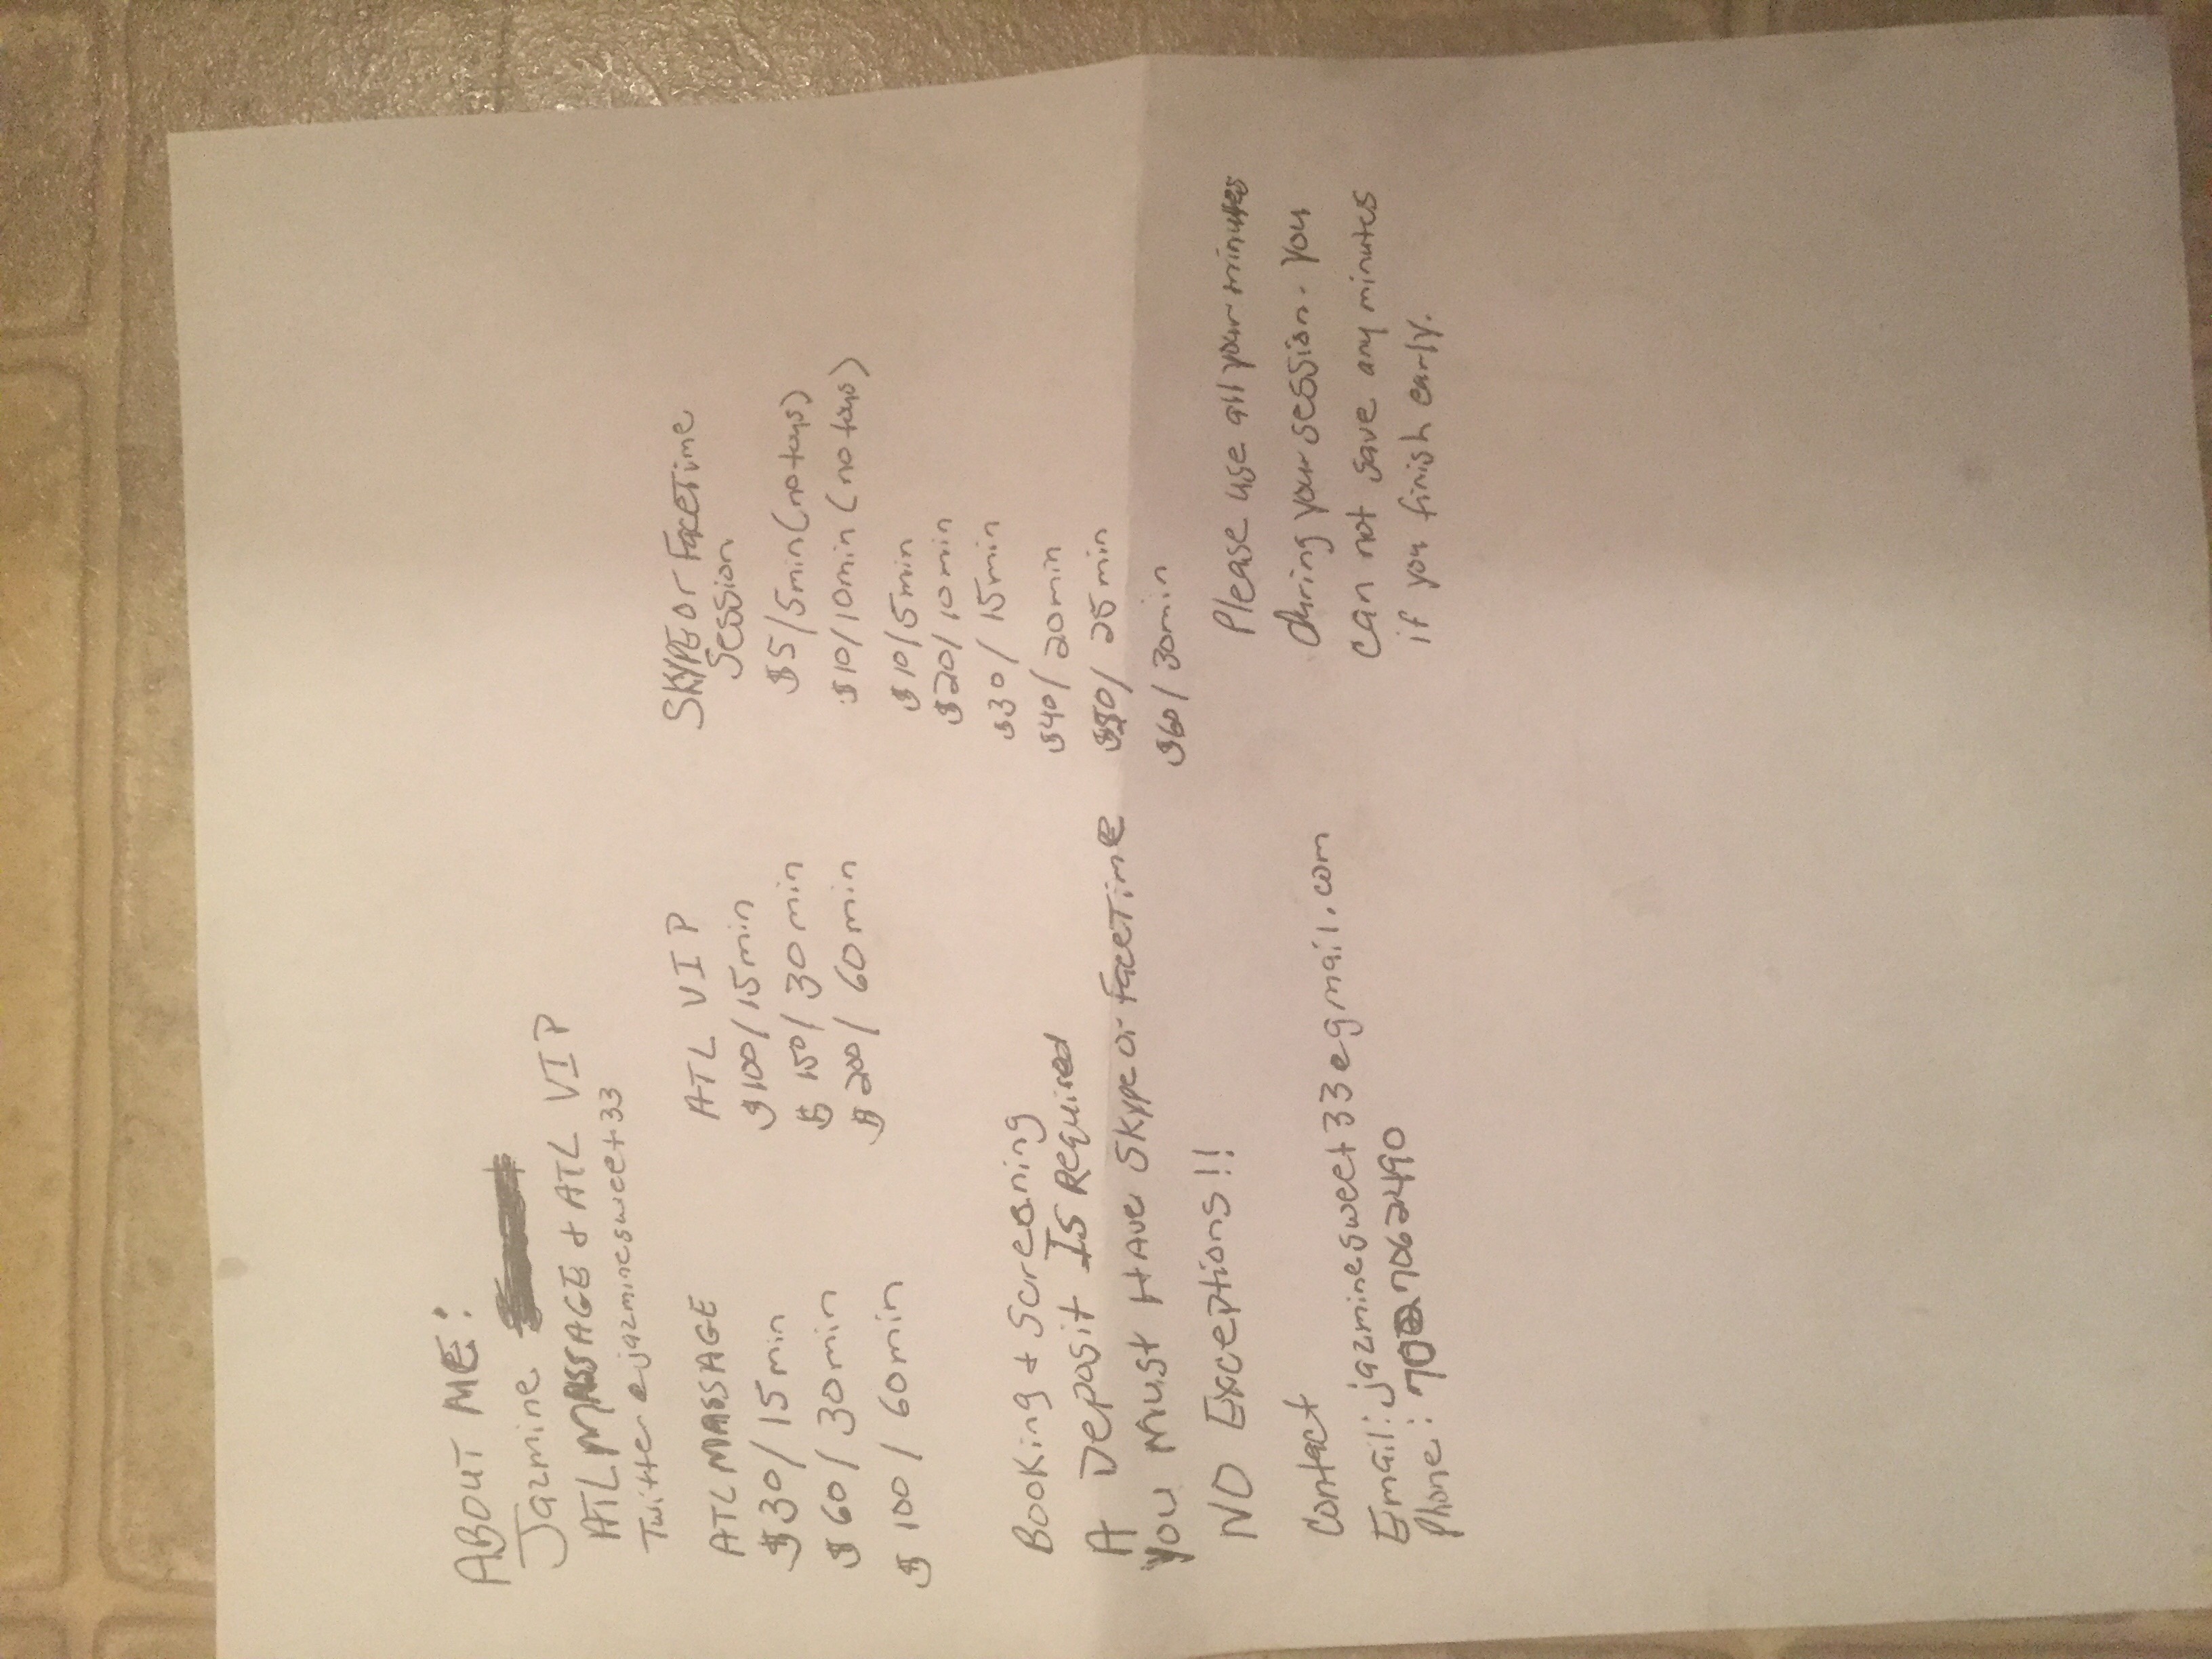 ABOUT ME:
Jazmine
ATL MASSAGE + ATL VIP
Twitter @jazminesweet33
ATL MASSAGE
$30/15min
$60/30min
$100/60min
ATL VIP
$100/15min
$150/30min
$200/60min
SKYPE or FaceTime
Session
$5/5min (no toys)
$10/10min (no toys)
$10/5min
$20/10min
$30/15min
$40/20min
$50/25min
$60/30min
Booking + Screening
A Deposit IS Required
You Must Have Skype or FaceTime
NO Exceptions!!
Please use all your minutes
during your session. You
can not save any minutes
if you finish early.
Contact
Email: jazminesweet33@gmail.com
Phone: 7027062490